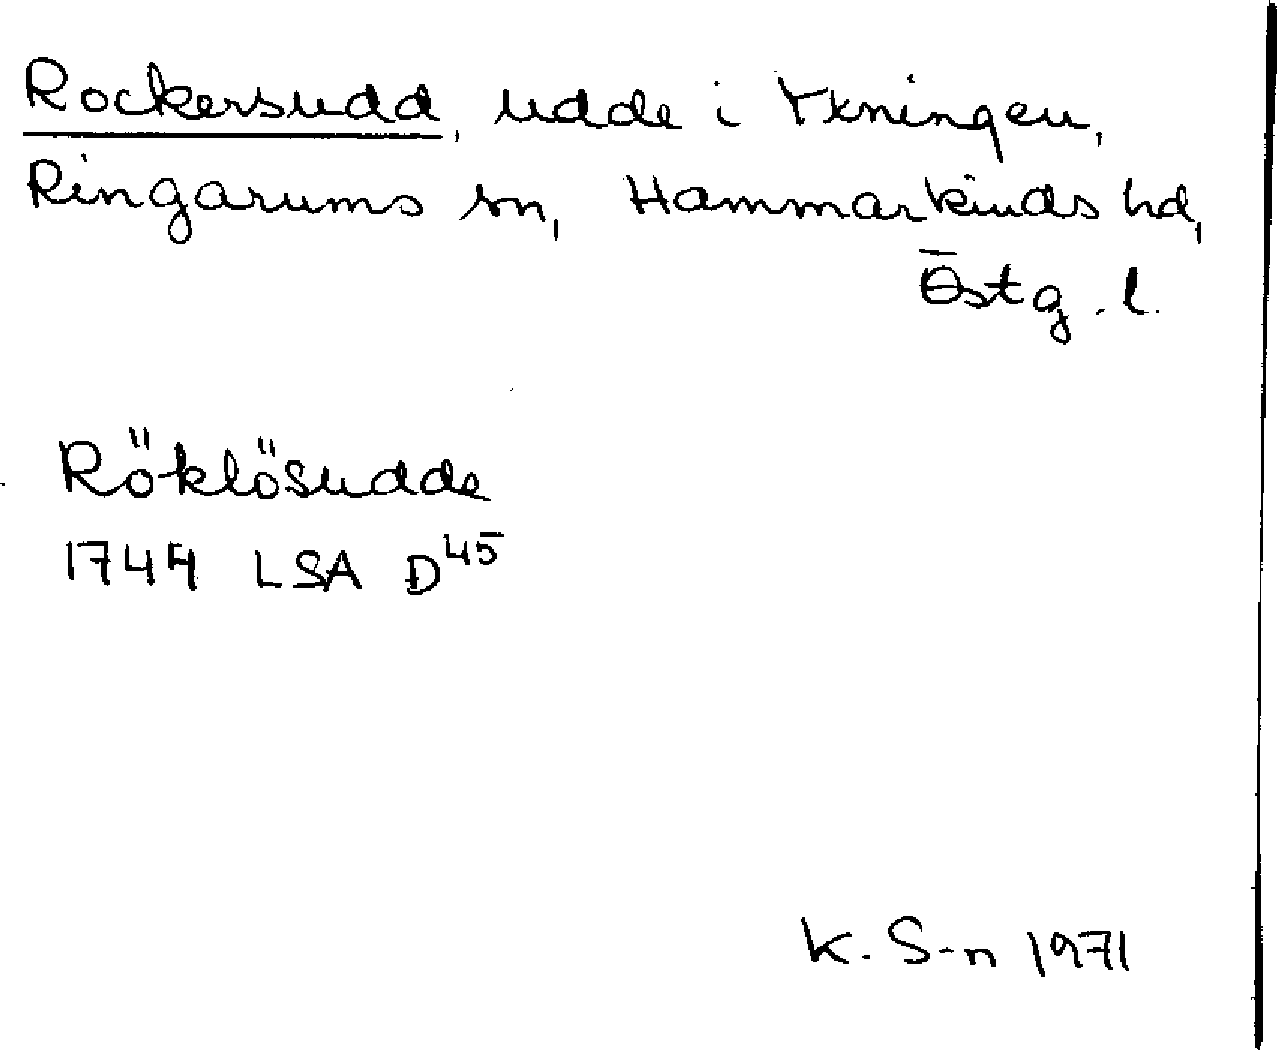 Rockersudd, udde i Yxningen,
Ringarums sn, Hammarkinds hd,
Östg. l.
Röklösudde
1744 LSA D45
K. S-n 1971